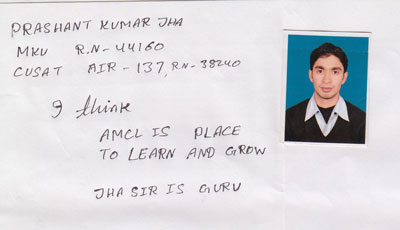 PRASHANT KUMAR JHA
MKU R.N-44160
CUSAT AIR-137, R.N-38240
I think
AMCL IS PLACE
TO LEARN AND GROW
JHA SIR IS GURU